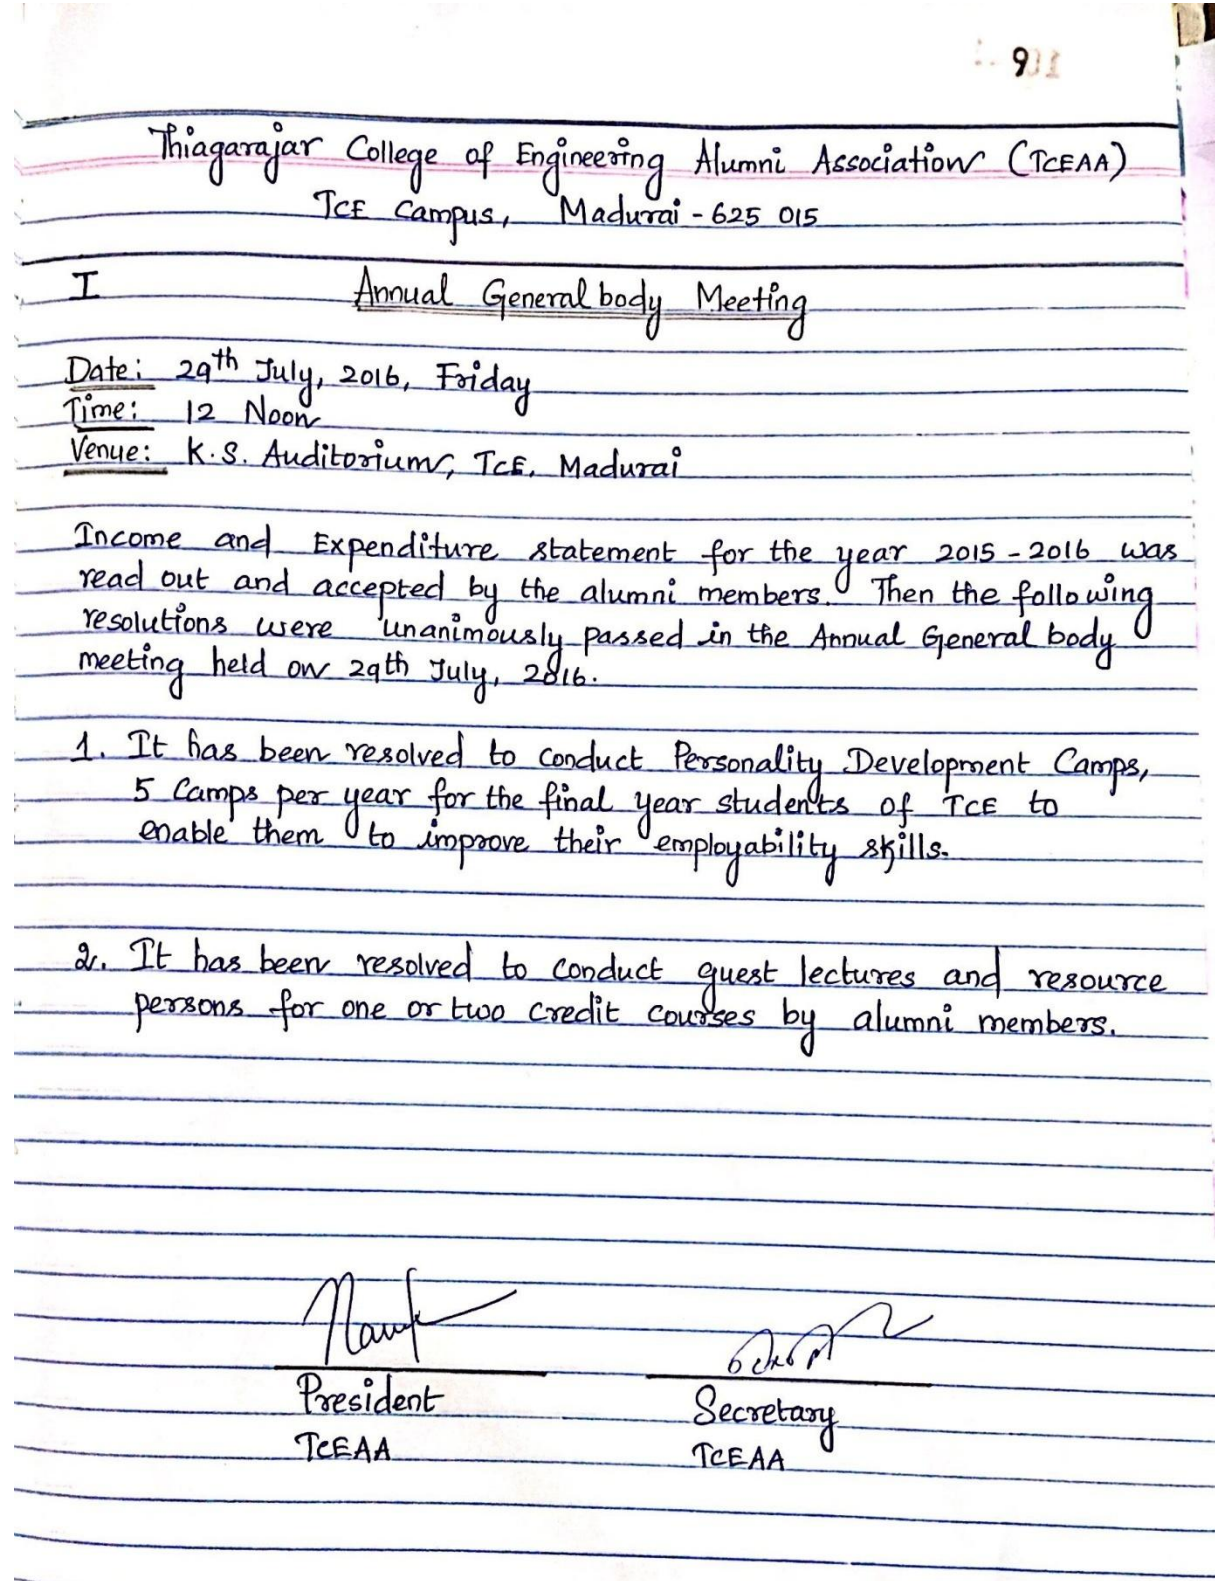 9
Thiagarajar College of Engineering Alumni Association (TCEAA)
TCE Campus, Madurai - 625 015
I Annual General body Meeting
Date: 29th July, 2016, Friday
Time: 12 Noon
Venue: K.S. Auditorium, TCE, Madurai
Income and Expenditure statement for the year 2015 - 2016 was
read out and accepted by the alumni members. Then the following
resolutions were unanimously passed in the Annual General body
meeting held on 29th July, 2016.
1. It has been resolved to conduct Personality Development Camps,
5 Camps per year for the final year students of TCE to
enable them to improve their employability skills.
2. It has been resolved to conduct guest lectures and resource
persons for one or two credit courses by alumni members.
President Secretary
TCEAA TCEAA